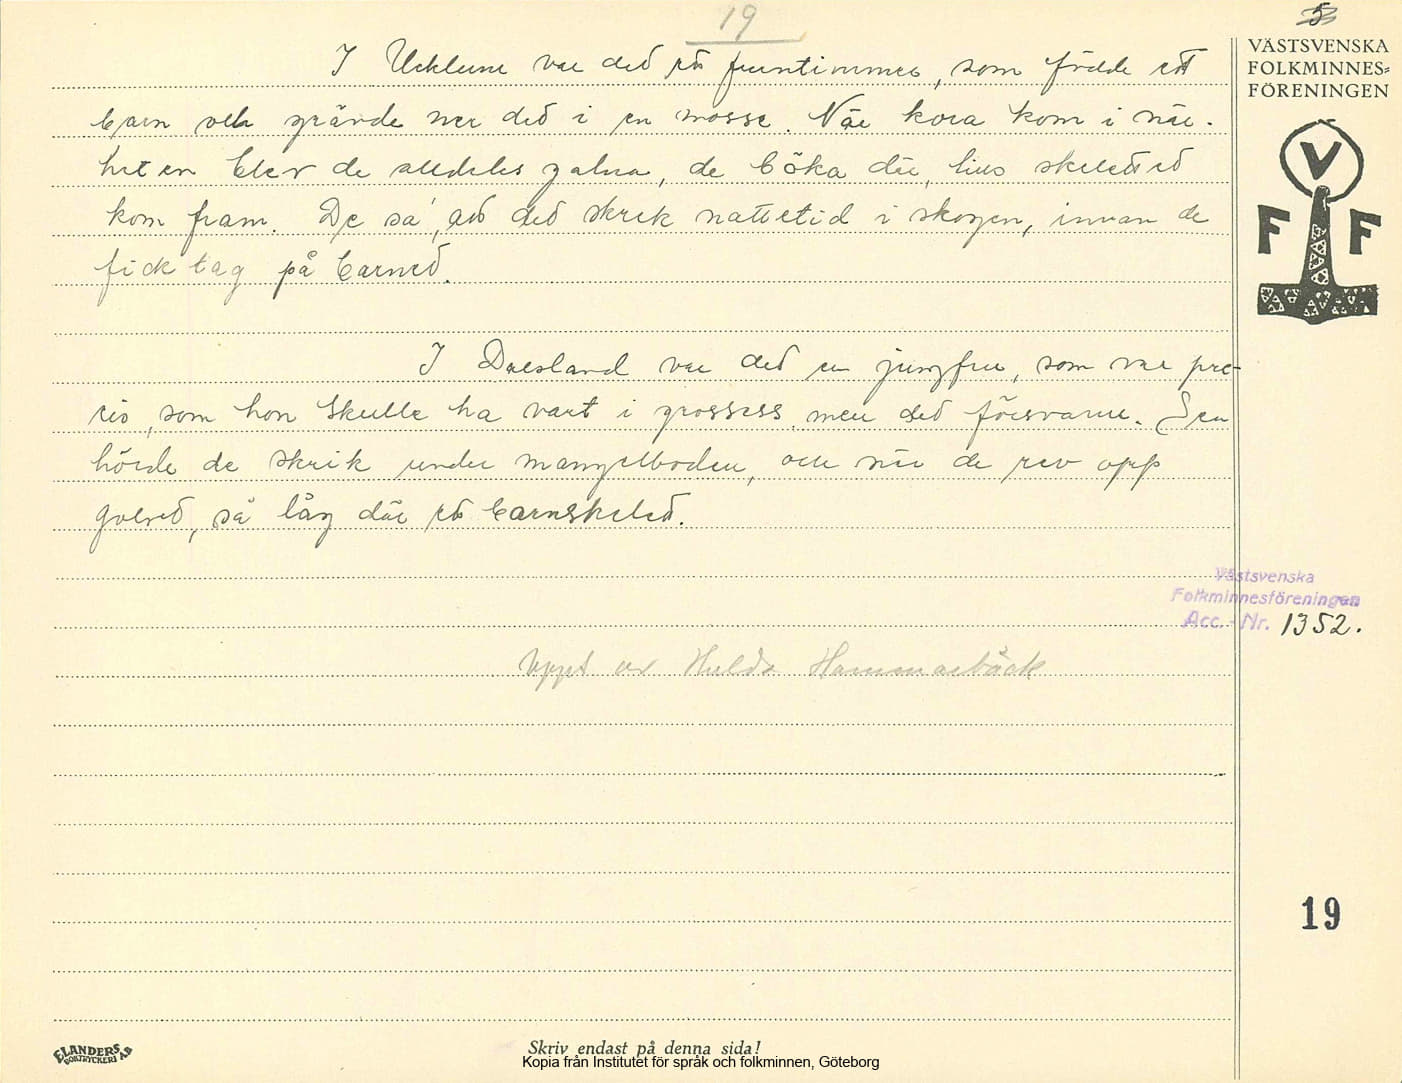 19
5
VÄSTSVENSKA
FOLKMINNES=
FÖRENINGEN
V
F F
I Ucklum var ded ett fruntimmer, som födde ett
barn och grävde ner ded i en mosse. När kora kom i när-
heten blev de alldeles galna, de böka där, tills skeletted
kom fram. De sa', att ded skrek nattetid i skogen, innan de
fick tag på barned.
I Dalsland var ded en jungfru, som var pre-
cis, som hon skulle ha vart i grossess, men ded försvann. Sen
hörde de skrik under mangelboden, och när de rev opp
golved, så låg där ett barnskeled.
Västsvenska
Folkminnesföreningen
Acc.-Nr. 1352.
Uppt av Hulda Hammarbäck
19
ELANDERS
BOKTRYCKERI AB
Skriv endast på denna sida!
Kopia från Institutet för språk och folkminnen, Göteborg